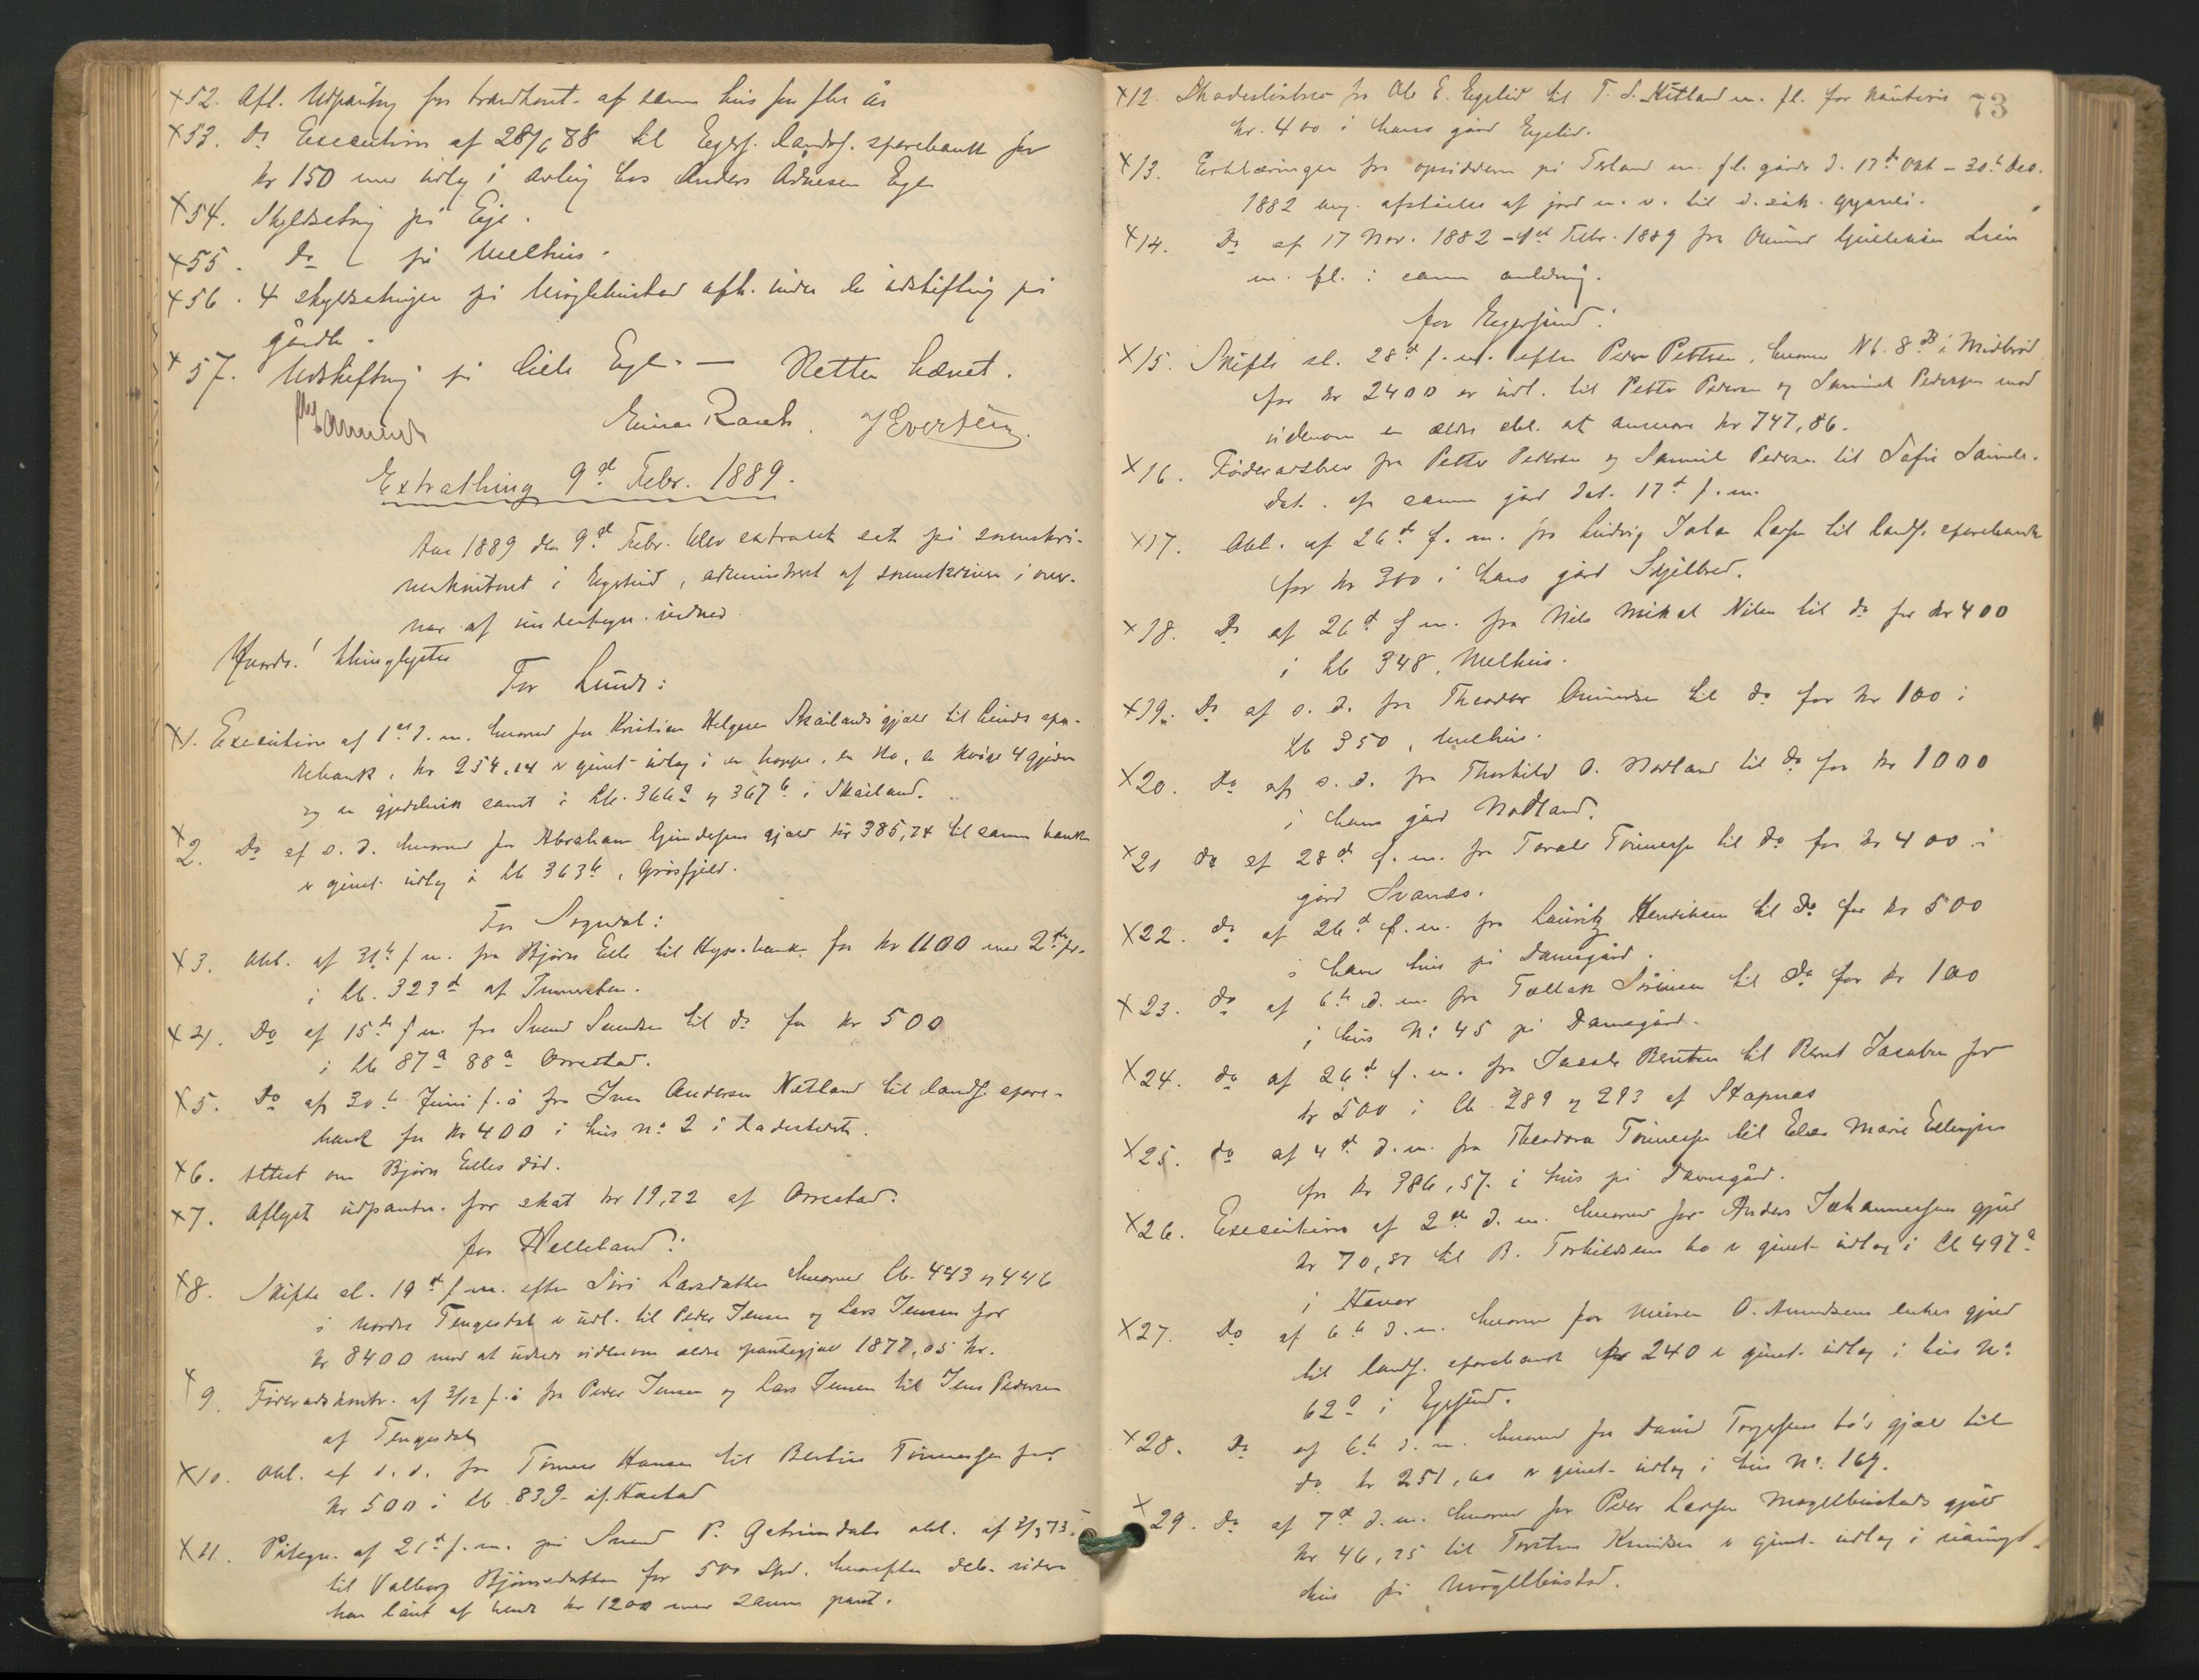 x52. Afl. Udpantng for brandkont. af samme hus for flere år
x53. Do Execution af 28/6 88 til Egers. landsg. sparebank for
kr 150 med udlæg i avling hos Anders Ådnesen Ege
x54. Skyldsetng på Eje.
x55. Do på Melhus.
x56. 4 skyldsetninger på Møglebustad afh. under en udskiftng på
gården.
x57. Udskiftng på lille Ege. — Retten hævet.
Einar Rasch. J Evertsen.
Extrathing 9d Febr. 1889.
Aar 1889 den 9d Febr. blev extraret sat på sorenskri-
verkontoret i Egersund, administreret af sorenskriveren i over-
vær af undertegn. vidner
Hvorda! thinglystes
For Lund:
x1. Execution af 1st d. m. hvorved for Kristian Helgesen Skailands gjæld til Lunds spa-
rebank, kr 254,14 er givet udlæg i en hoppe, en ko, en kvige 4 gjeder
og en gjedebuk samt i Lb. 366a og 367b i Skailand.
x2. Do af s. d. hvorved for Abraham Gundersens gjæld kr 385,74 til samme bank
er givet udlæg i Lb 363b, Grøsfjeld.
For Sogndal:
x3. Obl. af 31te f m. fra Bjørn Eelle til Hyp. bank. for kr 1100 med 2den pr.
i Lb. 323d af Immersten.
x4. Do af 15de f m. fra Svend Svendsen til do for kr 500
i Lb 87a 88a Orrestad.
x5. Do af 30te Juni f. å fra Iver Andersen Netland til landsg. spare-
bank for kr 400 i hus no 2 i ladestedet.
x6. Attest om Bjørn Eelles død.
x7. Aflyst udpantn. for skat kr 19,72 af Orrestad.
for Helleland:
x8. Skifte sl. 19de f m. efter Siri Larsdatter hvorved Lb. 443 og 446
i nordre Tengesdal er udl. til Peder Jensen og Lars Jensen for
kr 8400 mod at udrede vidnerne ældre pantegjæld 1877,05 kr.
x9. Føderådskontr. af 3/12 f. å fra Peder Jensen og Lars Jensen til Jens Pedersen
af Tengesdal
x10. Obl. af s. d. fra Tønnes Hansen til Bertine Tønnesen for
kr 500 i Lb. 839 af Haastad
x11. Påtegn. af 21de f. m. på Svend P. Getrundals obl. af 3/3 73
til Valborg Bjørnsdatter for 500 Spd. hvorefter deb. videre
har lånt af hende kr 1200 mod samme pant.
73
x12. Skadesløsbrev fra Ole E. Egelid til T. S. Hetland m. fl. for kaution
kr. 400 i hans gård Egelid.
x13. Erklæringer fra opsidderne på Tosland m. fl. gårde d. 17de Okt – 30te Dec.
1882 ang. afståelse af jord m. v. til d. sdt. gyanei.
x14. Do af 17 Nov. 1882 – 1st Febr. 1889 fra Omund Gullaksen Lien
m. fl. i samme anledng.
for Egersund:
x15. Skifte sl. 28de f. m. efter Peder Pettersen, hvorved No. 8B i Midbrød
for kr 2400 er udl. til Petter Pedersen og Samuel Pedersen mod
vidnerne en ældre obl. at ansvare kr 747,86.
x16. Føderådsbrev fra Petter Pedersen og Samuel Pedersen til Sofie Samuels-
dat. af samme gård dat. 17de f. m.
x17. Obl. af 26de f. m. fra Ludvig Johan Larsen til landsg. sparebank
for kr 300 i hans gård Skjelbred.
x18. Do af 26de f m. fra Nils Mikal Nilsen til do for kr 400
i Lb 348, Melhus.
x19. Do af s. d. fra Theodor Omundsen til do for kr 100 i
Lb 350, Melhus.
x20. Do af s. d. fra Thorkild O. Nodland til do for kr 1000
i hans gård Nodland.
x21 do af 28de f. m. fra Torvald Tønnesen til do for kr 400 i
gård Svanes.
x22. do af 26de f. m. fra Lauritz Henriksen til do for kr 500
i hans hus på Damsgård.
x23. do af 6te d. m. fra Tollak Sørensen til do for kr 100
i hus No 45 på Damsgård.
x24. do af 26de f. m. fra Jacob Bentsen til Bernt Jacobsen for
kr 500 i Lb. 289 og 293 af Stapnes
x25. do af 4de d. m. fra Theodora Tønnesen til Else Marie Ellingsen
for kr 386,57. i hus på Damsgård.
x26. Execution af 2den d. m. hvorved for Anders Johannesens gjæld
kr 70,87 til B. Torkildsens bo er givet udlæg i Lb 497a
i Havsø
x27. Do af 6te d. m. hvorved for O. Amundsens enkes gjæld
til landsg. sparebank kr 240 er givet udlæg i hus No
62a i Egersund.
x28. Do af 6te d. m. hvorved for David Torgersens bo's gjæld til
do kr 251,60 er givet udlæg i hus No. 169.
x29. Do af 7de d. m. hvorved for Peder Larsen Møgelbustads gjæld
kr 46,25 til Torsten Knudsen er givet udlæg i
hus på Møgelbustad.